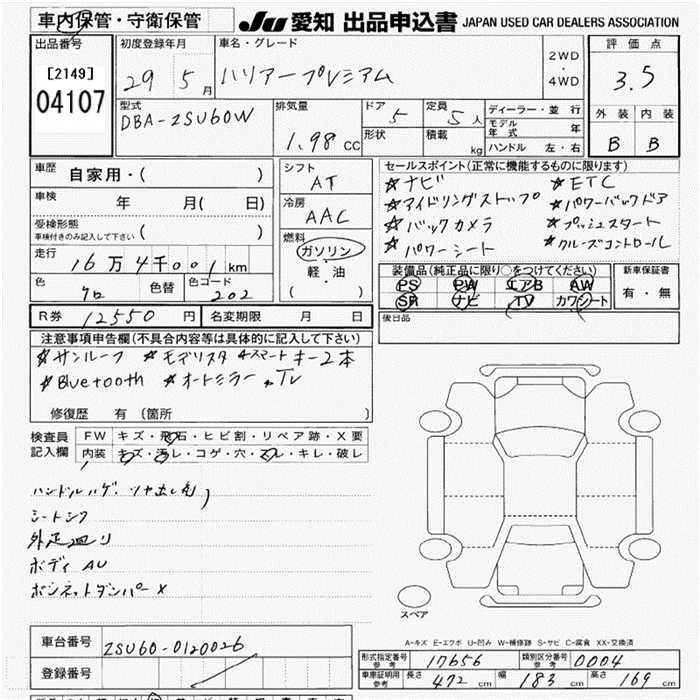 車内保管・守衛保管 JU 愛知 出品申込書 JAPAN USED CAR DEALERS ASSOCIATION
出品番号 初度登録年月 車名・グレード 評価点
[2149] 04107 29 5月 ハリアープレミアム 2WD・4WD 3.5
型式 排気量 ドア 定員 ディーラー・並行 外装 内装
DBA-ZSU60W 1.98 cc 5 5人 モデル年式 年 B B
形状 積載 kg ハンドル 左・右
車歴 自家用・( ) シフト AT セールスポイント(正常に機能するものに限ります)
車検 年 月( 日) 冷房 AAC ☆ナビ ☆ETC
☆アイドリングストップ ☆パワーバックドア
受検形態 ☆バックカメラ ☆プッシュスタート
車検付きのみ記入して下さい ( ) 燃料 ガソリン・軽・油 ( ) ☆パワーシート ☆クルーズコントロール
走行 16万4千001km 装備品(純正品に限り○をつけてください) 新車保証書
色 クロ 色替 色コード 202 PS PW エアB AW 有・無
SR ナビ TV カワシート
R券 12550円 名変期限 月 日 後日品
注意事項申告欄(不具合内容等は具体的に記入して下さい)
☆サンルーフ ☆モデリスタ ☆スマートキー2本
☆Bluetooth ☆オートミラー TV
修復歴 有(箇所 )
検査員記入欄 FW キズ・飛石・ヒビ割・リペア跡・X要
内装 キズ・汚レ・コゲ・穴・スレ・キレ・破レ
ハンドルハゲ、ツヤ出し剤
シートシワ
外足廻り
ボディ AU
ボンネットダンパー X
スペア
A-キズ E-エクボ U-凹み W-補修跡 S-サビ C-腐食 XX-交換済
車台番号 ZSU60-0120026
登録番号
形式指定番号 参考 17656 類別区分番号 参考 0004
車庫証明用 参考 長さ 472cm 幅 183cm 高さ 169cm